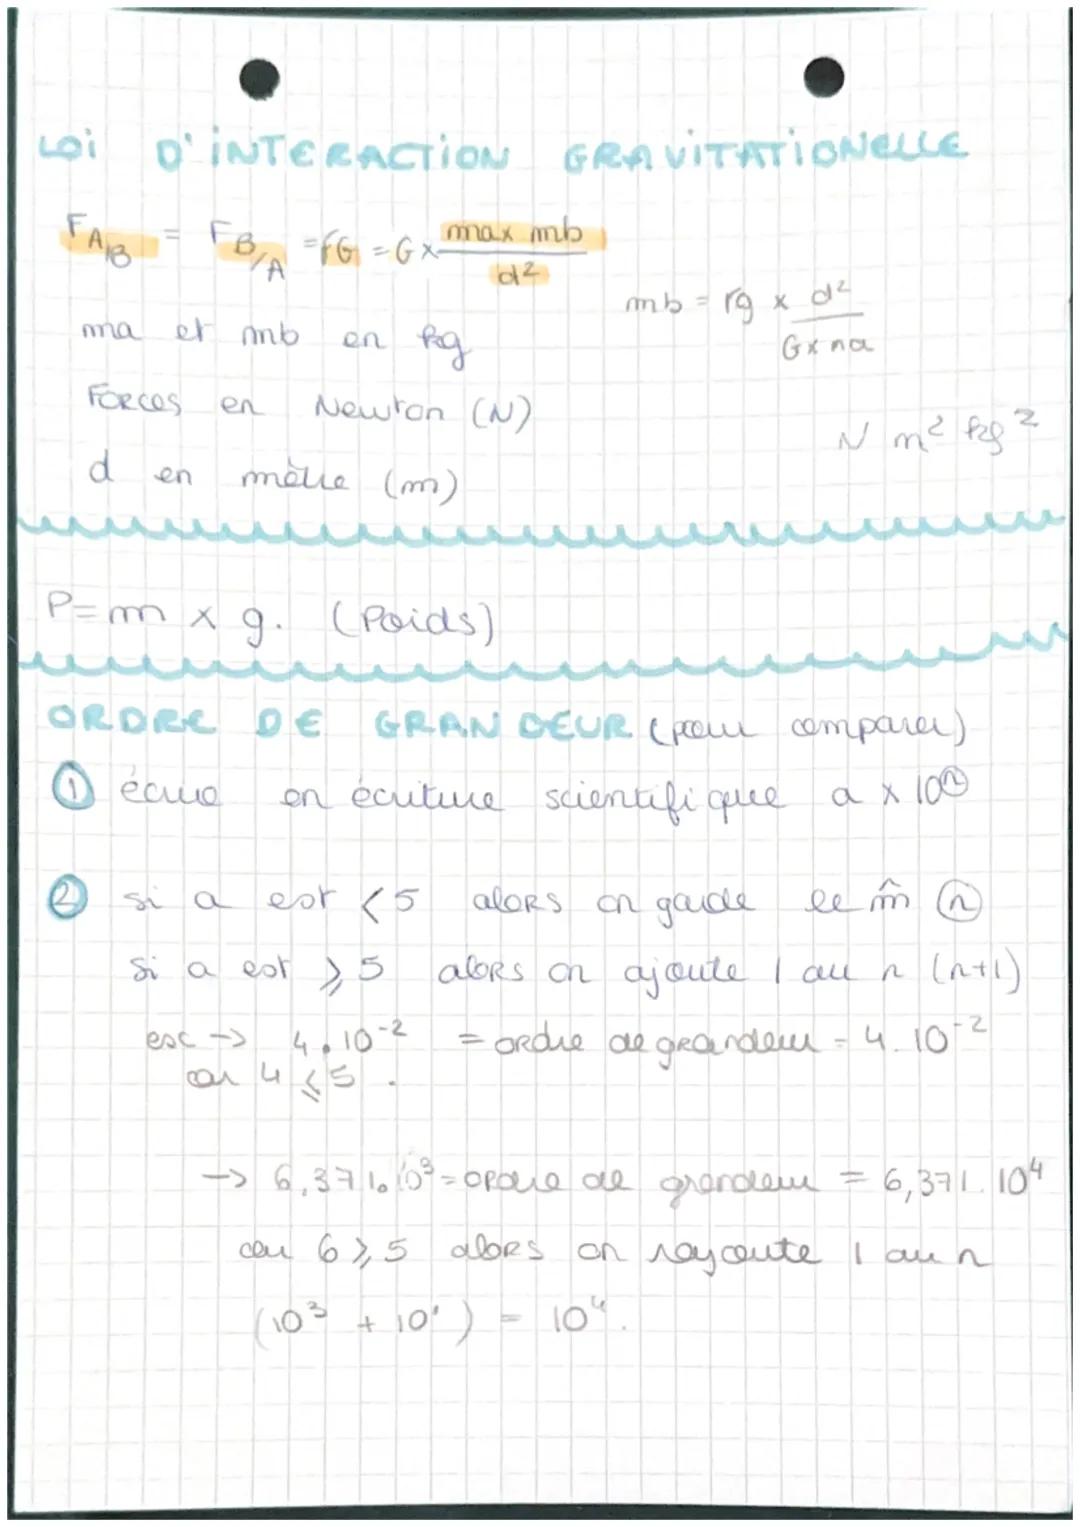 LOI D'INTERACTION GRAVITATIONELLE
F A/B = F B/A = FG = G x ma x mb / d²
mb = Fg x d² / G x ma
ma et mb en kg
Forces en Newton (N)
N m² kg²
d en mètre (m)
P = m x g. (Poids)
ORDRE DE GRANDEUR (pour comparer)
① écrire en écriture scientifique a x 10ⁿ
② si a est < 5 alors on garde le m̂ n
si a est ⩾ 5 alors on ajoute 1 au n (n+1)
esc → 4.10⁻² = ordre de grandeur = 4.10⁻²
car 4 ⩽ 5.
→ 6,371.10³ = ordre de grandeur = 6,371.10⁴
car 6 ⩾ 5 alors on rajoute 1 au n
(10³ + 10¹) = 10⁴.